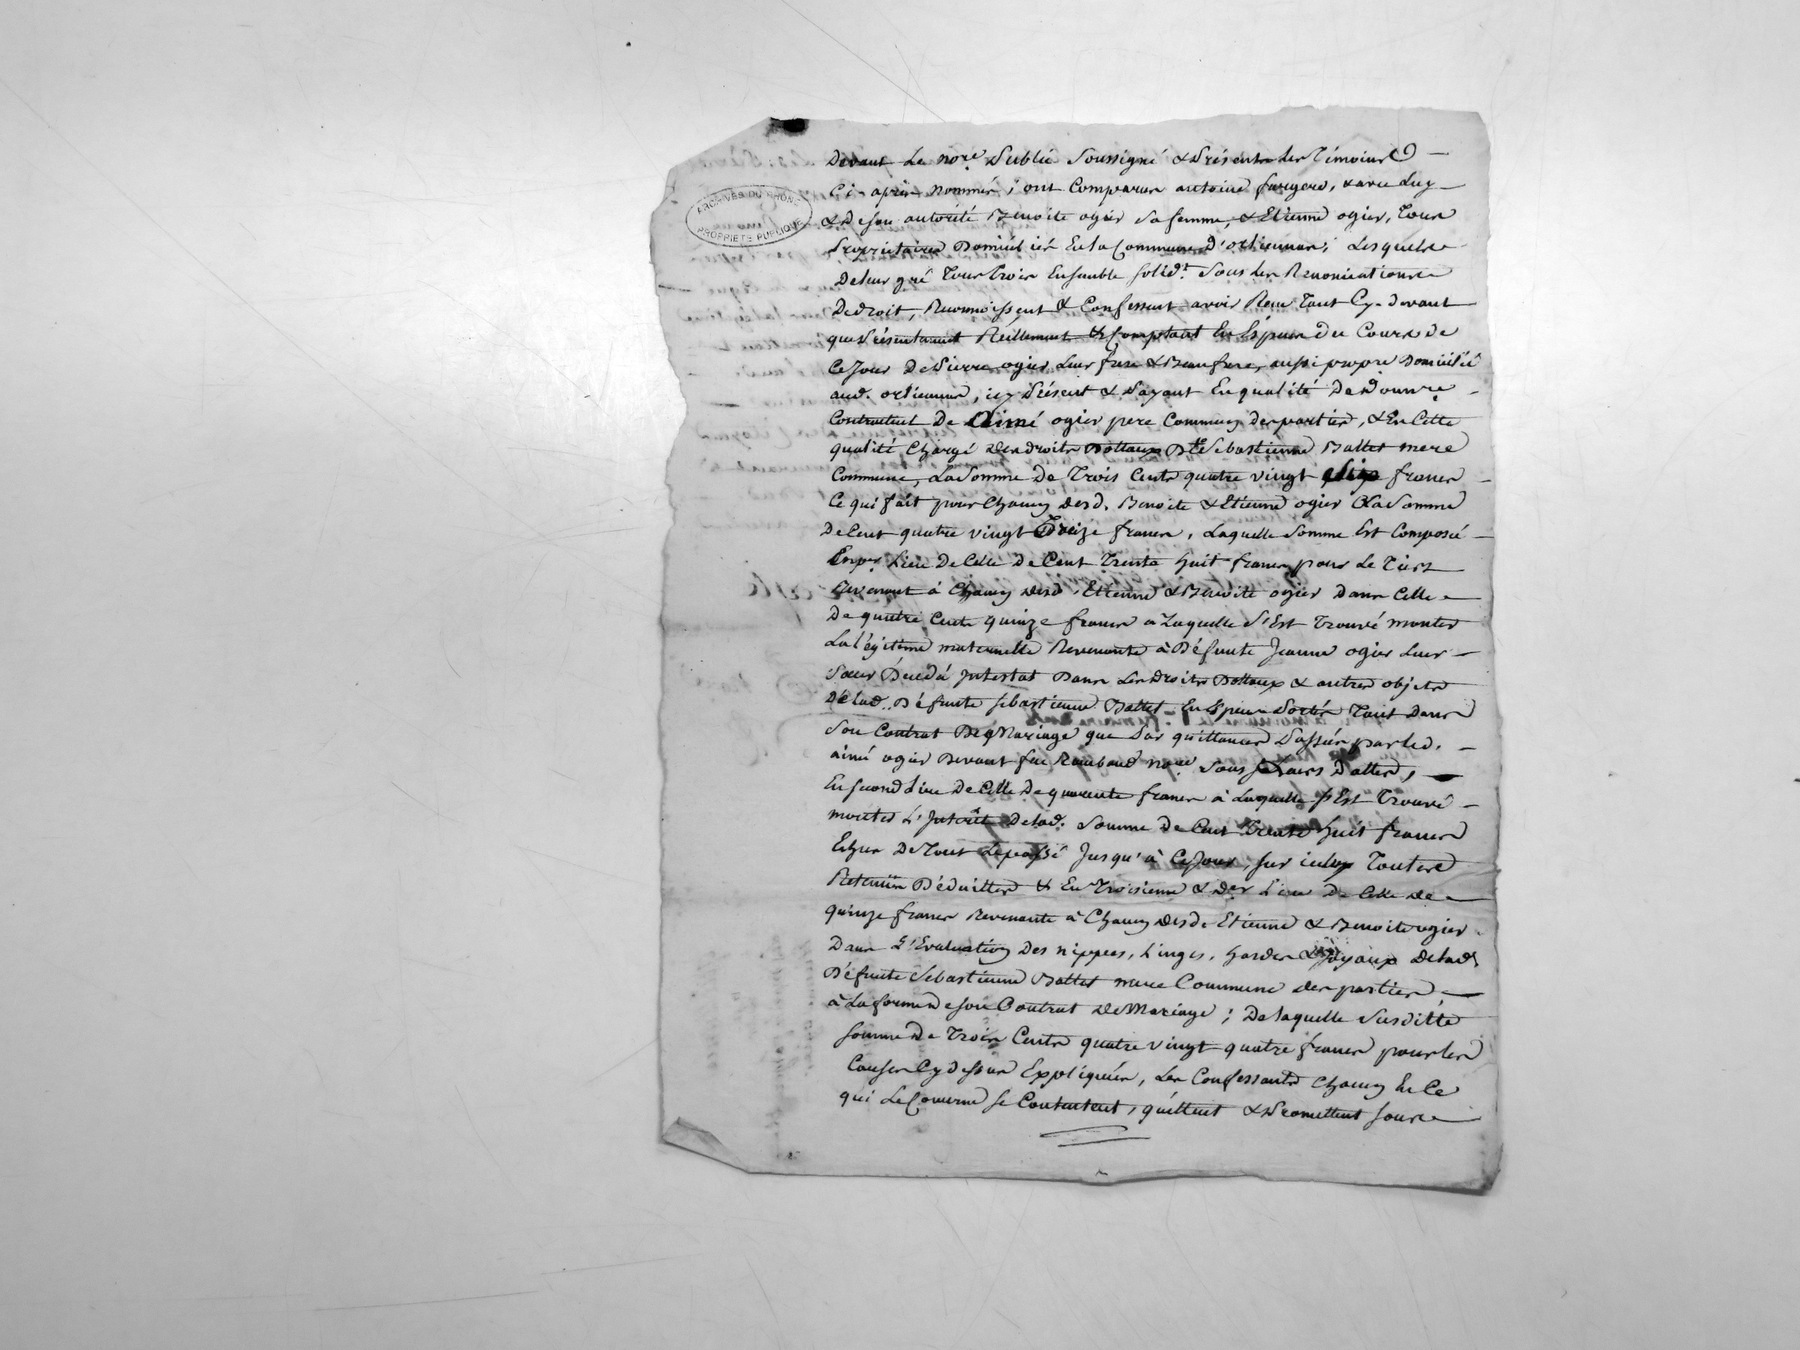 ARCHIVES DU RHÔNE
PROPRIÉTÉ PUBLIQUE
Devant Le nore. Public Soussigné & Présents Les Témoins
Ci-après nommés, ont Comparus antoine fargere, & avec Luy
& De son autorité Benoite ogier Sa femme, & Etienne ogier, Tous
Propriétaires Domiciliés En la Commune D'orlienas; Lesquels
De leur gré Tous Trois Ensemble solidt. Sous Les Renonciations
De droit, Reconnoissent & Confessent avoir Reçu Tant Cy-devant
que Présentement Réellement & Comptant En Espèces Du Cours de
Ce Jour De Pierre ogier Leur frere & Beaufrere, aussi propre Domicilié
aud. orlienas, icy Présent & Payant En qualité De Donnre.
Contractuel De Aimé ogier pere Commun des parties, & En Cette
qualité Chargé des droits Dottaux De Sebastienne Battet mere
Commune, La Somme De Trois Cents quatre vingt francs
Ce qui fait pour Chacun desd. Benoite & Etienne ogier La Somme
De Cent quatre vingt Treize francs, Laquelle Somme Est Composée
Enpr. Lieu De Celle De Cent Trente huit francs pour Le Tiers
Revenant à Chacun desd. Etienne & Benoite ogier Dans Celle
De quatre Cents quinze francs a Laquelle S'Est Trouvé monter
La légitime maternelle Revenante à Défunte Jeanne ogier Leur
Sœur Décédé Intestat Dans Les droits Dottaux & autres objets
De lad. Défunte Sebastienne Battet En Espèces Sortis Tant Dans
Son Contrat De Mariage que Par quittances Passés par led.
aimé ogier Devant feu Rambaud nore.
En second Lieu De Celle De quarente francs à Laquelle s'Est Trouvé
monter L'Intérêt De lad. Somme de Cent Trente huit francs
Echus De Tout Le passé Jusqu'à Ce Jour, sur iceluy Toutes
Retenües Déduittes & En Troisieme & Der Lieu De Celle de
quinze francs Revenante à Chacun desd. Etienne & Benoite ogier
Dans L'Evaluation Des nippes, Linges, hardes & Joyaux De lad.
Défunte Sebastienne Battet mere Commune des parties
à La forme De son Contrat De Mariage; De laquelle Susditte
Somme De Trois Cents quatre vingt quatre francs pour les
Causes Cy dessus Expliquées, Les Confessants Chacun En Ce
qui Le Concerne Se Contentent, quittent & Promettent sous